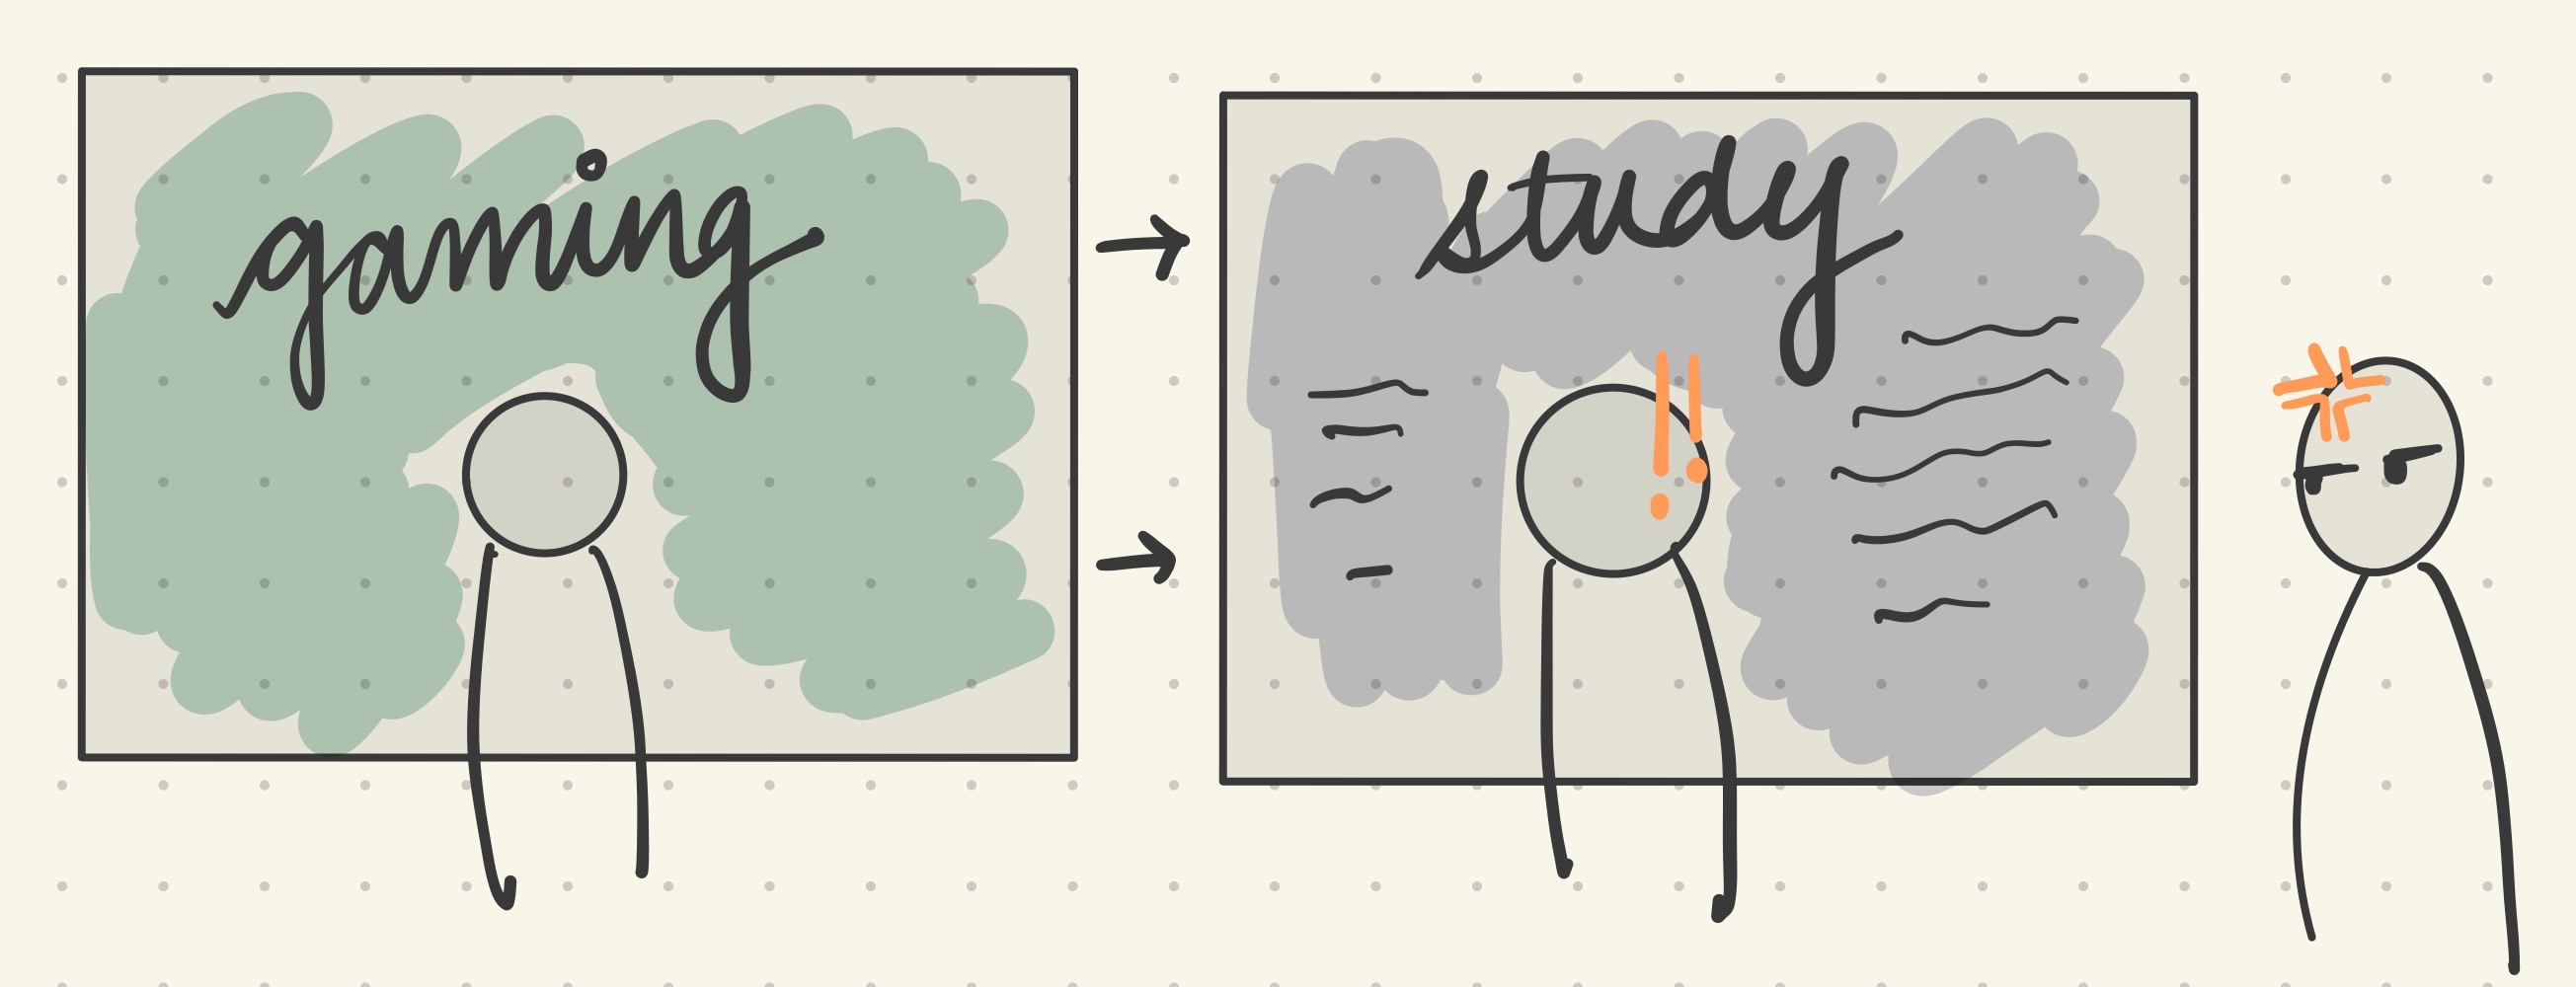 gaming
study